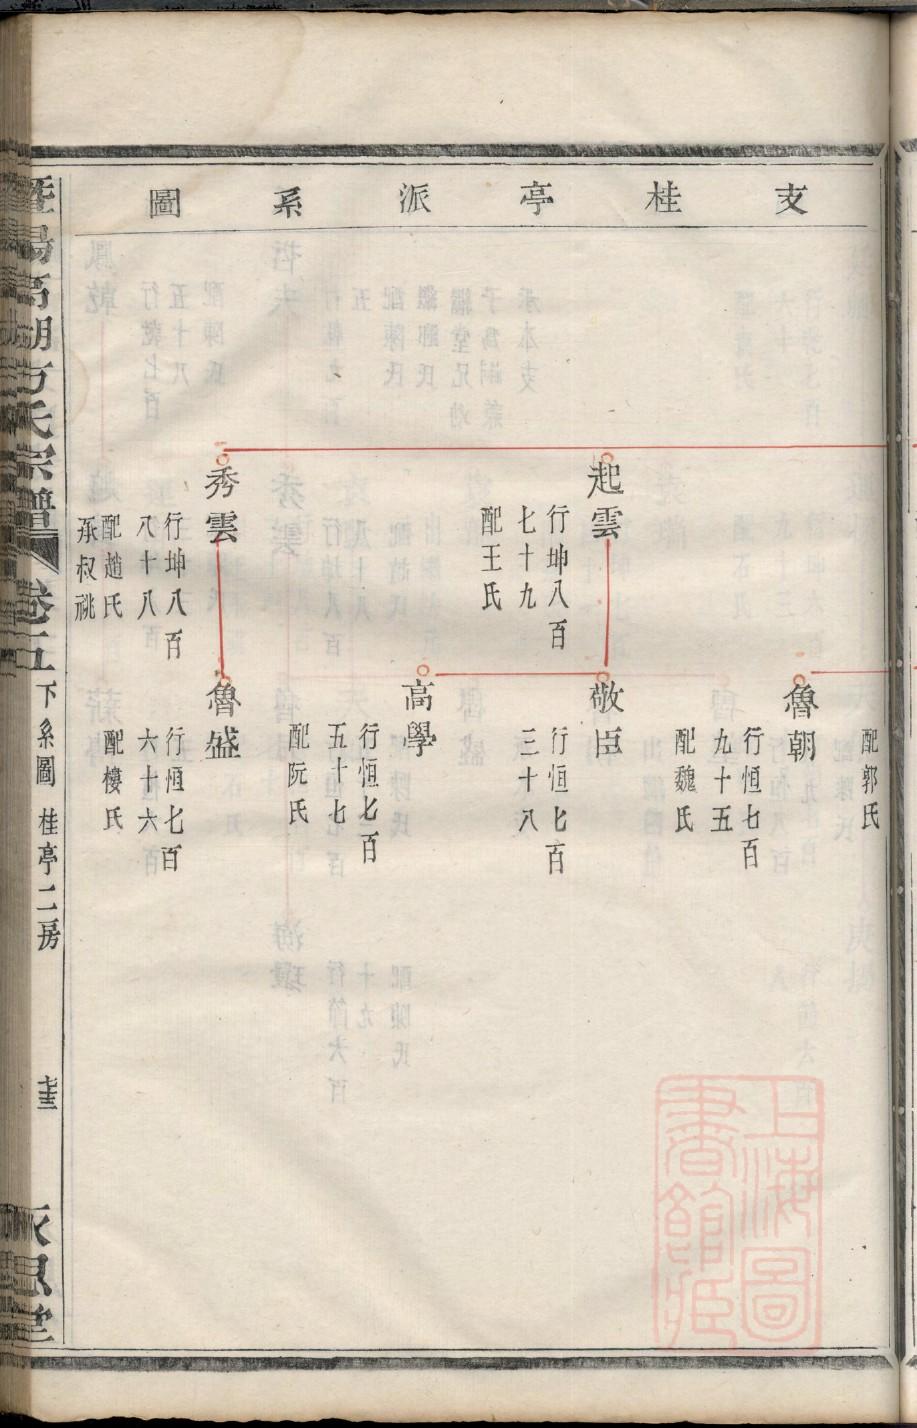 支桂亭派系圖
配郭氏
魯朝
行恒七百
九十五
配魏氏
起雲
行坤八百
七十九
配王氏
敬臣
行恒七百
三十八
高學
行恒七百
五十七
配阮氏
秀雲
行坤八百
八十八
配趙氏
承叔祧
魯盛
行恒七百
六十六
配樓氏
暨陽高湖方氏宗譜 卷五 下系圖 桂亭二房
上海圖書館藏